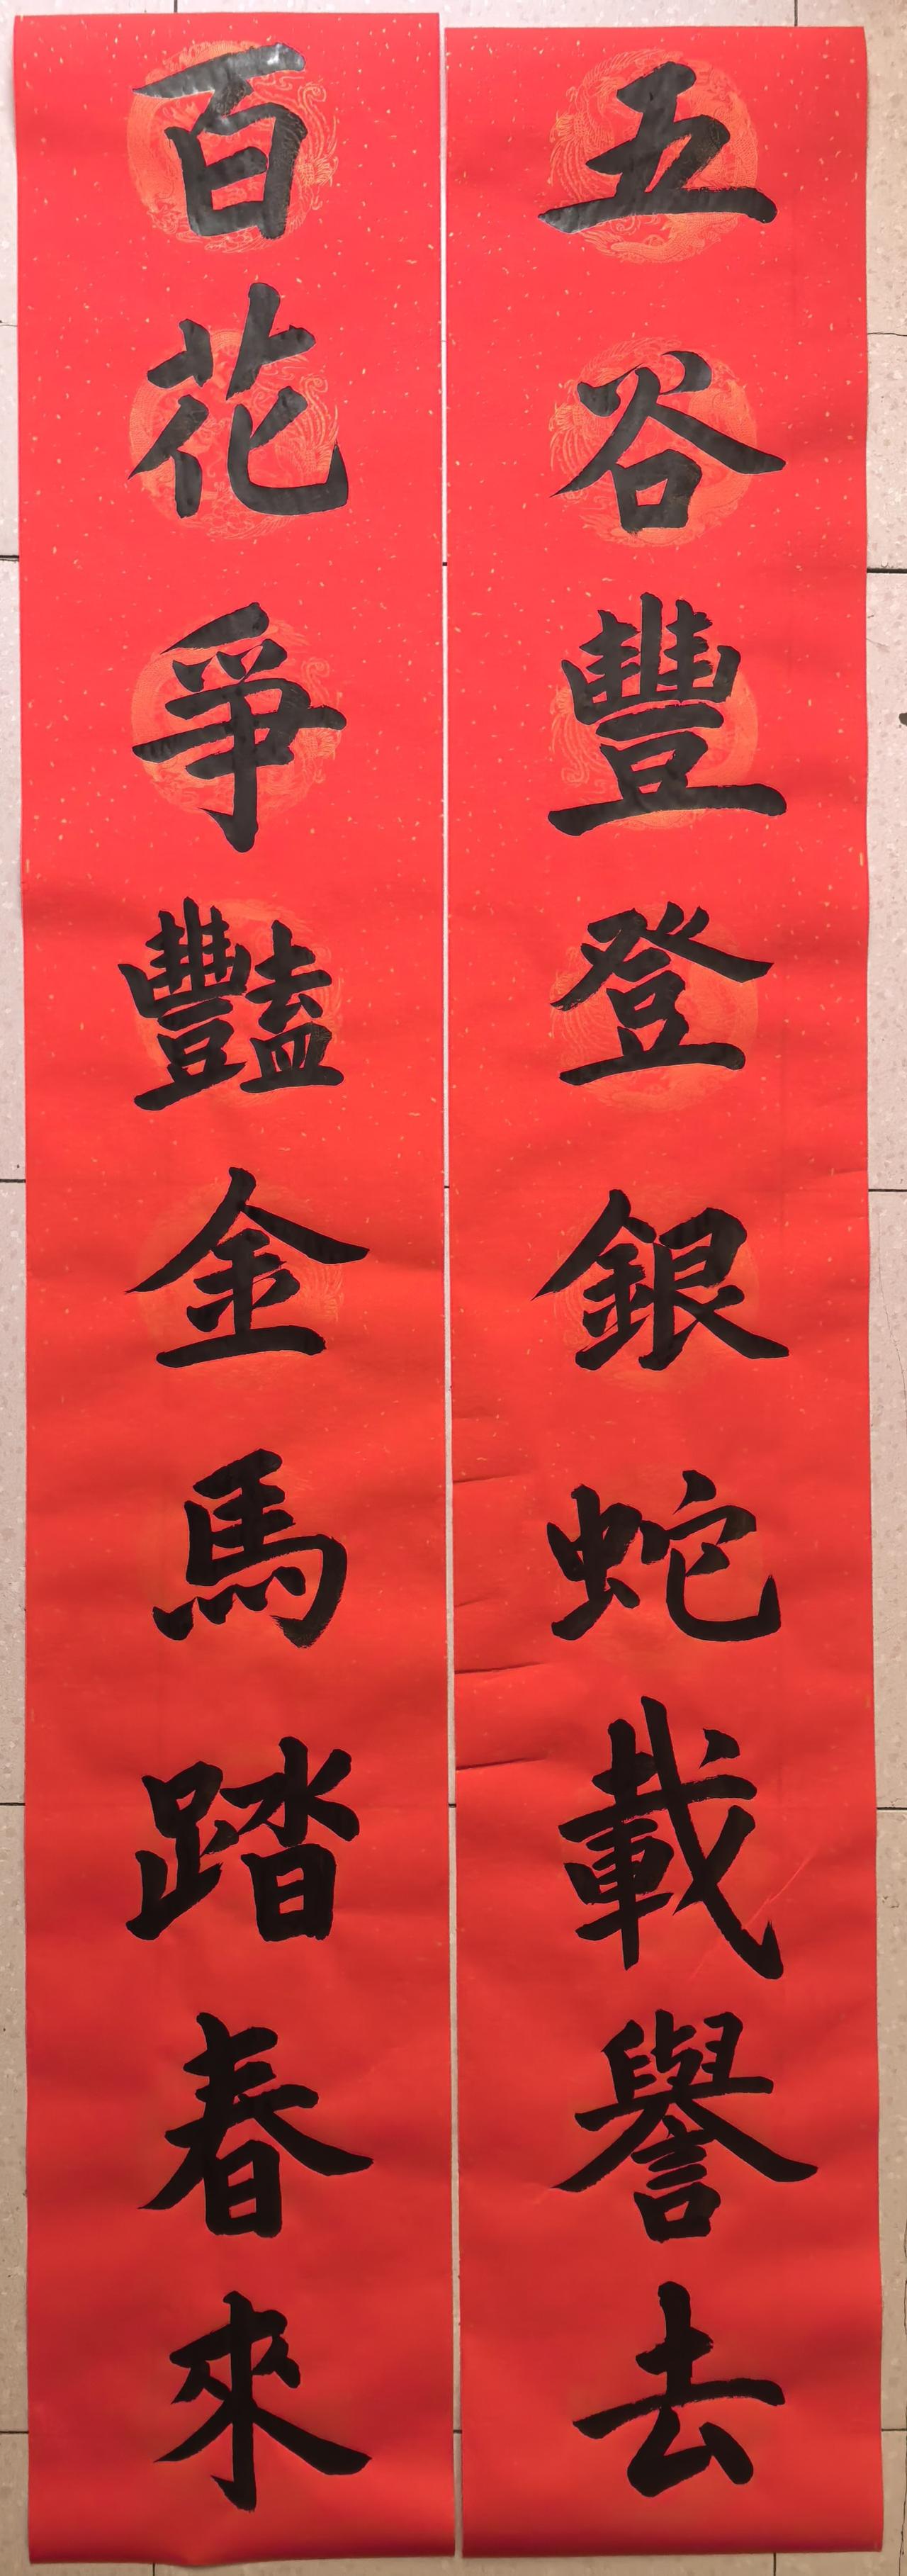 五谷豐登銀蛇載譽去
百花爭豔金馬踏春來